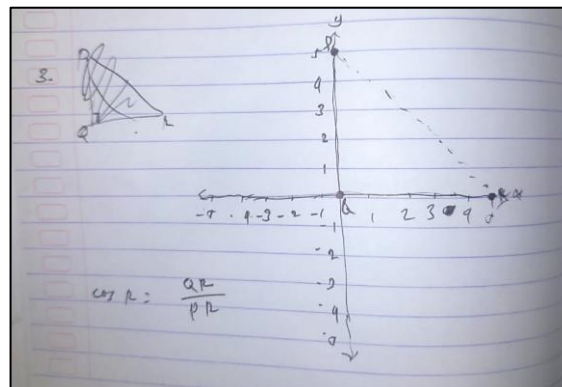 3.
y
P
5
4
3
2
1
Q
R x
-5 -4 -3 -2 -1 Q 1 2 3 4 5 R x
-1
-2
-3
-4
-5
cos R = QR / PR